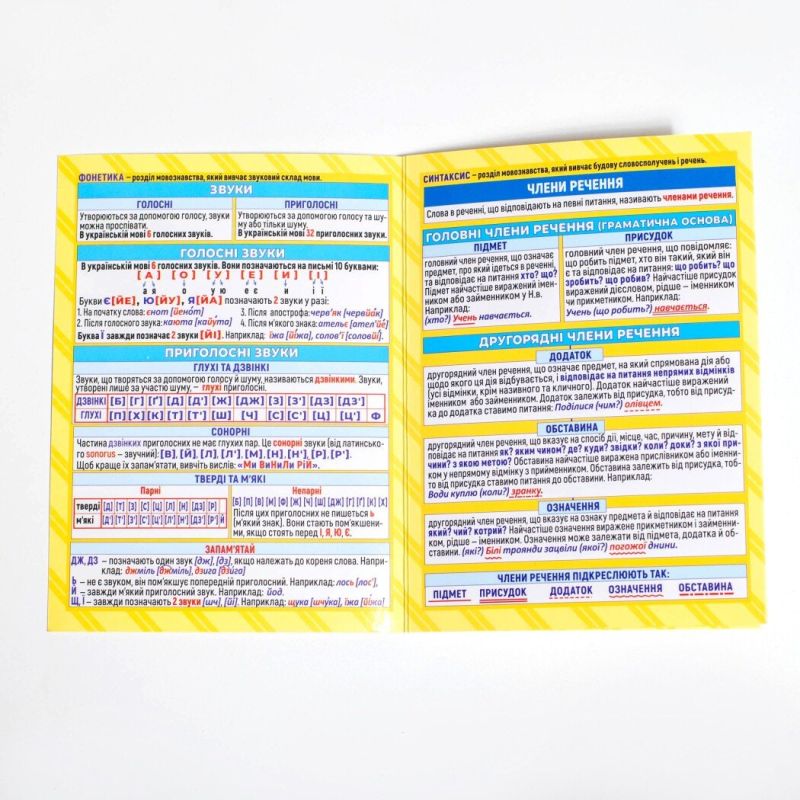 ФОНЕТИКА – розділ мовознавства, який вивчає звуковий склад мови.
ЗВУКИ
ГОЛОСНІ
Утворюються за допомогою голосу, звуки
можна проспівати.
В українській мові 6 голосних звуків.
ПРИГОЛОСНІ
Утворюються за допомогою голосу та шу-
му або тільки шуму.
В українській мові 32 приголосних звуків.
ГОЛОСНІ ЗВУКИ
В українській мові 6 голосних звуків. Вони позначаються на письмі 10 буквами:
[А] [О] [У] [Е] [И] [І]
а я о у ю е є и і ї
Букви Є[ЙЕ], Ю[ЙУ], Я[ЙА] позначають 2 звуки у разі:
1. На початку слова: єнот [йенот] 3. Після апострофа: черв'як [червйак]
2. Після голосного звука: каюта [кайута] 4. Після м'якого знака: ательє [ател'йе]
Буква Ї завжди позначає 2 звуки [ЙІ]. Наприклад: їжа [йіжа], солов'ї [соловйі].
ПРИГОЛОСНІ ЗВУКИ
ГЛУХІ ТА ДЗВІНКІ
Звуки, що творяться за допомогою голосу й шуму, називаються дзвінкими. Звуки,
утворені лише за участю шуму, – глухі приголосні.
ДЗВІНКІ [Б] [Г] [Ґ] [Д] [Д'] [Ж] [ДЖ] [З] [З'] [ДЗ] [ДЗ']
ГЛУХІ [П] [Х] [К] [Т] [Т'] [Ш] [Ч] [С] [С'] [Ц] [Ц'] Ф
СОНОРНІ
Частина дзвінких приголосних не має глухих пар. Це сонорні звуки (від латинсько-
го sonorus – звучний): [В], [Й], [Л], [Л'], [М], [Н], [Н'], [Р], [Р'].
Щоб краще їх запам'ятати, вивчіть вислів: «Ми ВиНиЛи РіЙ».
ТВЕРДІ ТА М'ЯКІ
Парні
тверді [Д] [Т] [З] [С] [Ц] [Л] [Н] [ДЗ] [Р]
м'які [Д'] [Т'] [З'] [С'] [Ц'] [Л'] [Н'] [ДЗ'] [Р'] Й
Непарні
[Б] [П] [В] [М] [Ф] [Ж] [Ч] [Ш] [ДЖ] [Г] [Ґ] [К] [Х]
Після цих приголосних не пишеться ь
(м'який знак). Вони стають пом'якшени-
ми, якщо стоять перед І, Я, Ю, Є.
ЗАПАМ'ЯТАЙ
ДЖ, ДЗ – позначають один звук [дж], [дз], якщо належать до кореня слова. Напри-
клад: джміль [джміль], дзига [дзига]
Ь – не є звуком, він пом'якшує попередній приголосний. Наприклад: лось [лос'],
Й – завжди м'який приголосний звук. Наприклад: йод.
Щ, Ї – завжди позначають 2 звуки [шч], [йі]. Наприклад: щука [шчука], їжа [йіжа]
СИНТАКСИС – розділ мовознавства, який вивчає будову словосполучень і речень.
ЧЛЕНИ РЕЧЕННЯ
Слова в реченні, що відповідають на певні питання, називають членами речення.
ГОЛОВНІ ЧЛЕНИ РЕЧЕННЯ (ГРАМАТИЧНА ОСНОВА)
ПІДМЕТ
головний член речення, що означає
предмет, про який ідеться в реченні,
та відповідає на питання хто? що?
Найчастіше підмет виражений імен-
ником або займенником у Н.в.
Наприклад:
(хто?) Учень навчається.
ПРИСУДОК
головний член речення, що повідомляє:
що робить підмет, хто він такий, який він
є та відповідає на питання: що робить? що
зробить? що робив? Найчастіше присудок
виражений дієсловом, рідше – іменником
чи прикметником. Наприклад:
Учень (що робить?) навчається.
ДРУГОРЯДНІ ЧЛЕНИ РЕЧЕННЯ
ДОДАТОК
другорядний член речення, що означає предмет, на який спрямована дія або
щодо якого ця дія відбувається, і відповідає на питання непрямих відмінків
(усі відмінки, крім називного та кличного). Додаток найчастіше виражений
іменником або займенником. Додаток залежить від присудка, тобто від присуд-
ка до додатка ставимо питання: Поділися (чим?) олівцем.
ОБСТАВИНА
другорядний член речення, що вказує на спосіб дії, місце, час, причину, мету й від-
повідає на питання як? яким чином? де? куди? звідки? коли? доки? з якої при-
чини? з якою метою? Обставина найчастіше виражена прислівником або іменни-
ком у непрямому відмінку з прийменником. Обставина залежить від присудка, тоб-
то від присудка ставимо питання до обставини. Наприклад:
Води куплю (коли?) зранку.
ОЗНАЧЕННЯ
другорядний член речення, що вказує на ознаку предмета й відповідає на питання
який? чий? котрий? Найчастіше означення виражене прикметником і займенни-
ком, рідше – іменником. Означення може залежати від підмета, додатка й об-
ставини. (які?) Білі троянди зацвіли (якої?) погожої днини.
ЧЛЕНИ РЕЧЕННЯ ПІДКРЕСЛЮЮТЬ ТАК:
ПІДМЕТ ПРИСУДОК ДОДАТОК ОЗНАЧЕННЯ ОБСТАВИНА